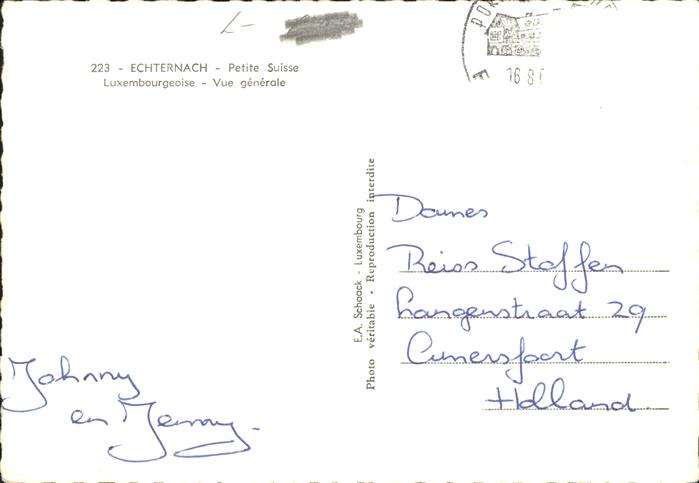 L-
223 - ECHTERNACH - Petite Suisse
Luxembourgeoise - Vue générale
E.A. Schaack - Luxembourg
Photo véritable • Reproduction interdite
Dames
Reiss Stoffen
Langenstraat 29
Amersfoort
Holland
Johnny
en Jenny.